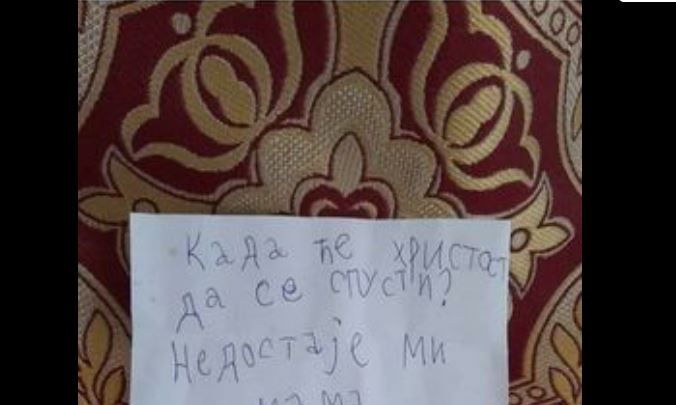 Када ће христос
да се спусти?
Недостаје ми
мама